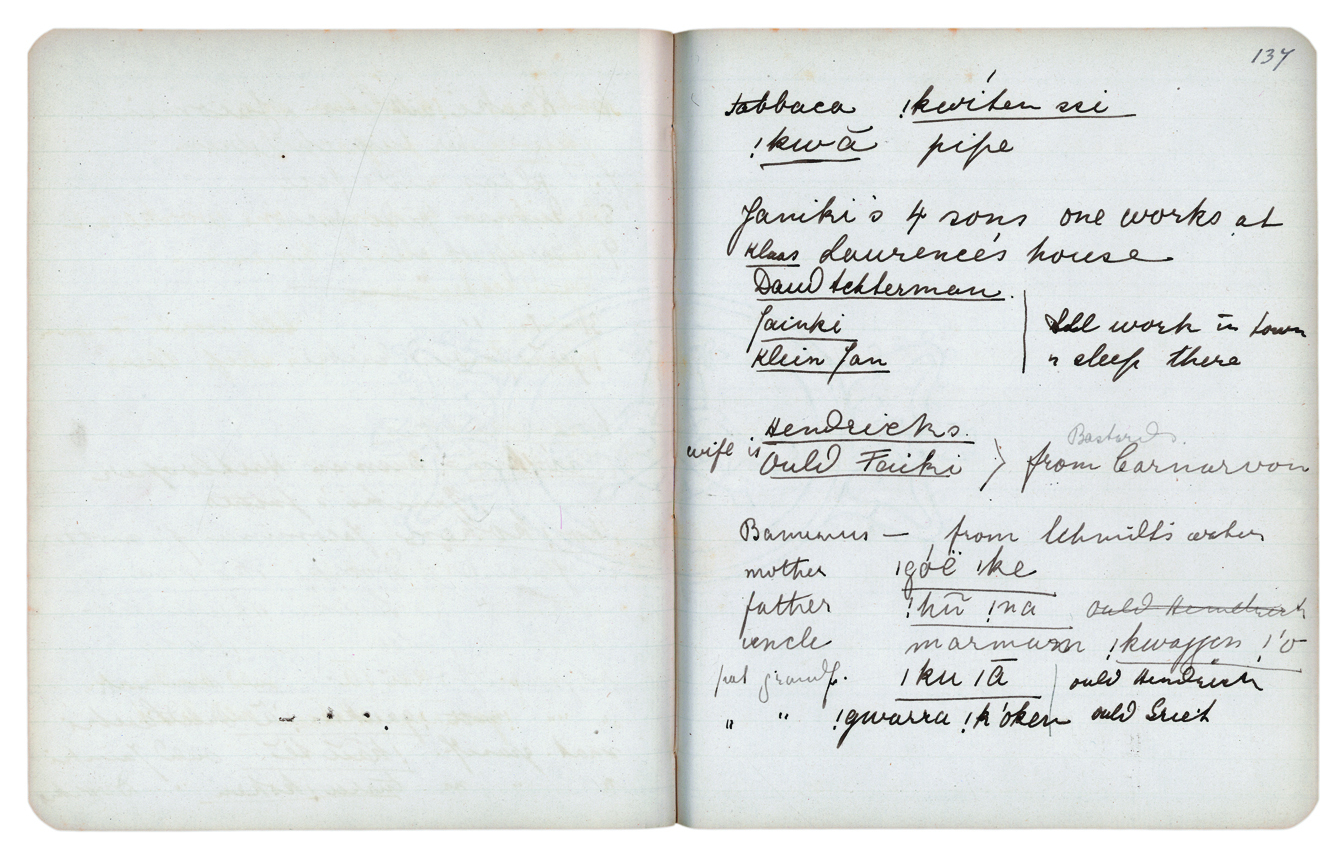 137
tabbaca !kwíten ssi
!kwā pipe
Janiki's 4 sons one works at
Klaas Laurence's house
David Achterman.
Jainki
Klein Jan
All work in town
sleep there
Hendricks.
wife is Ould Faiki
Bastards.
from Carnarvon
Bamunus — from Schmidt's water
mother ǃgóë ǃke
father !hū !na ould Hendrick
uncle marmarn !kwaggen !'o
pat grandf. ǀku ǀā ould Hendrick
" " !gwarra !k'oken ould Griet